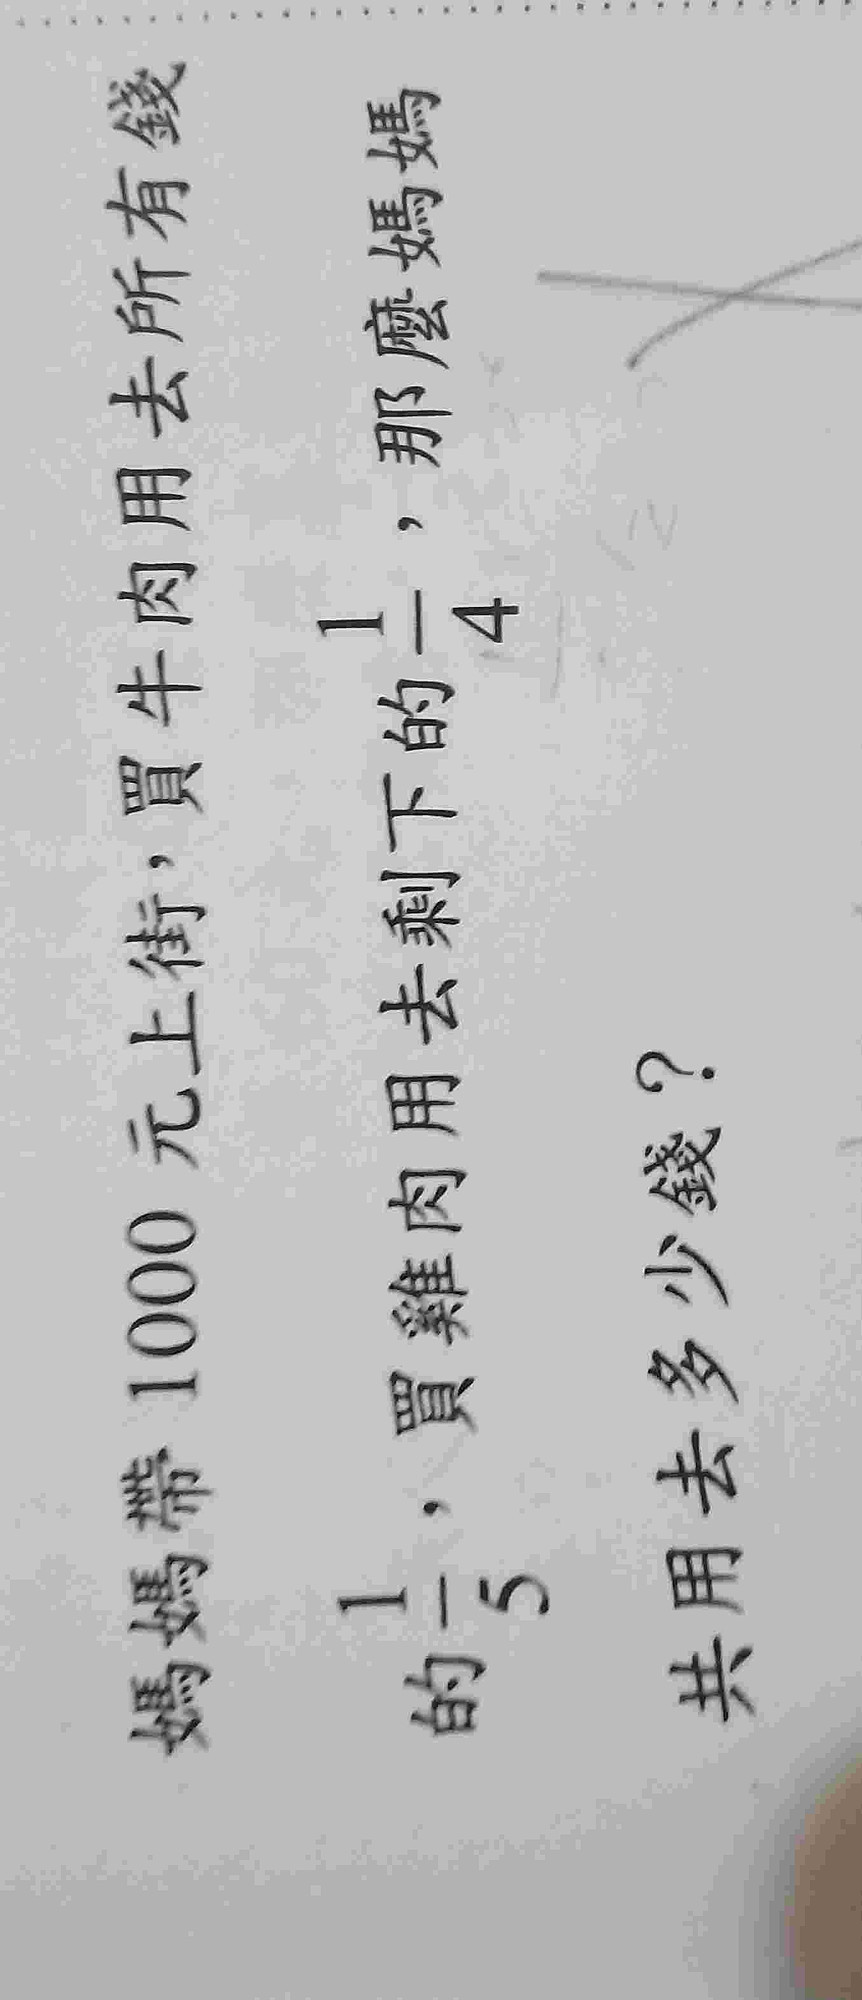 媽媽帶 1000 元上街，買牛肉用去所有錢
的 1/5 ，買雞肉用去剩下的 1/4 ，那麼媽媽
共用去多少錢？